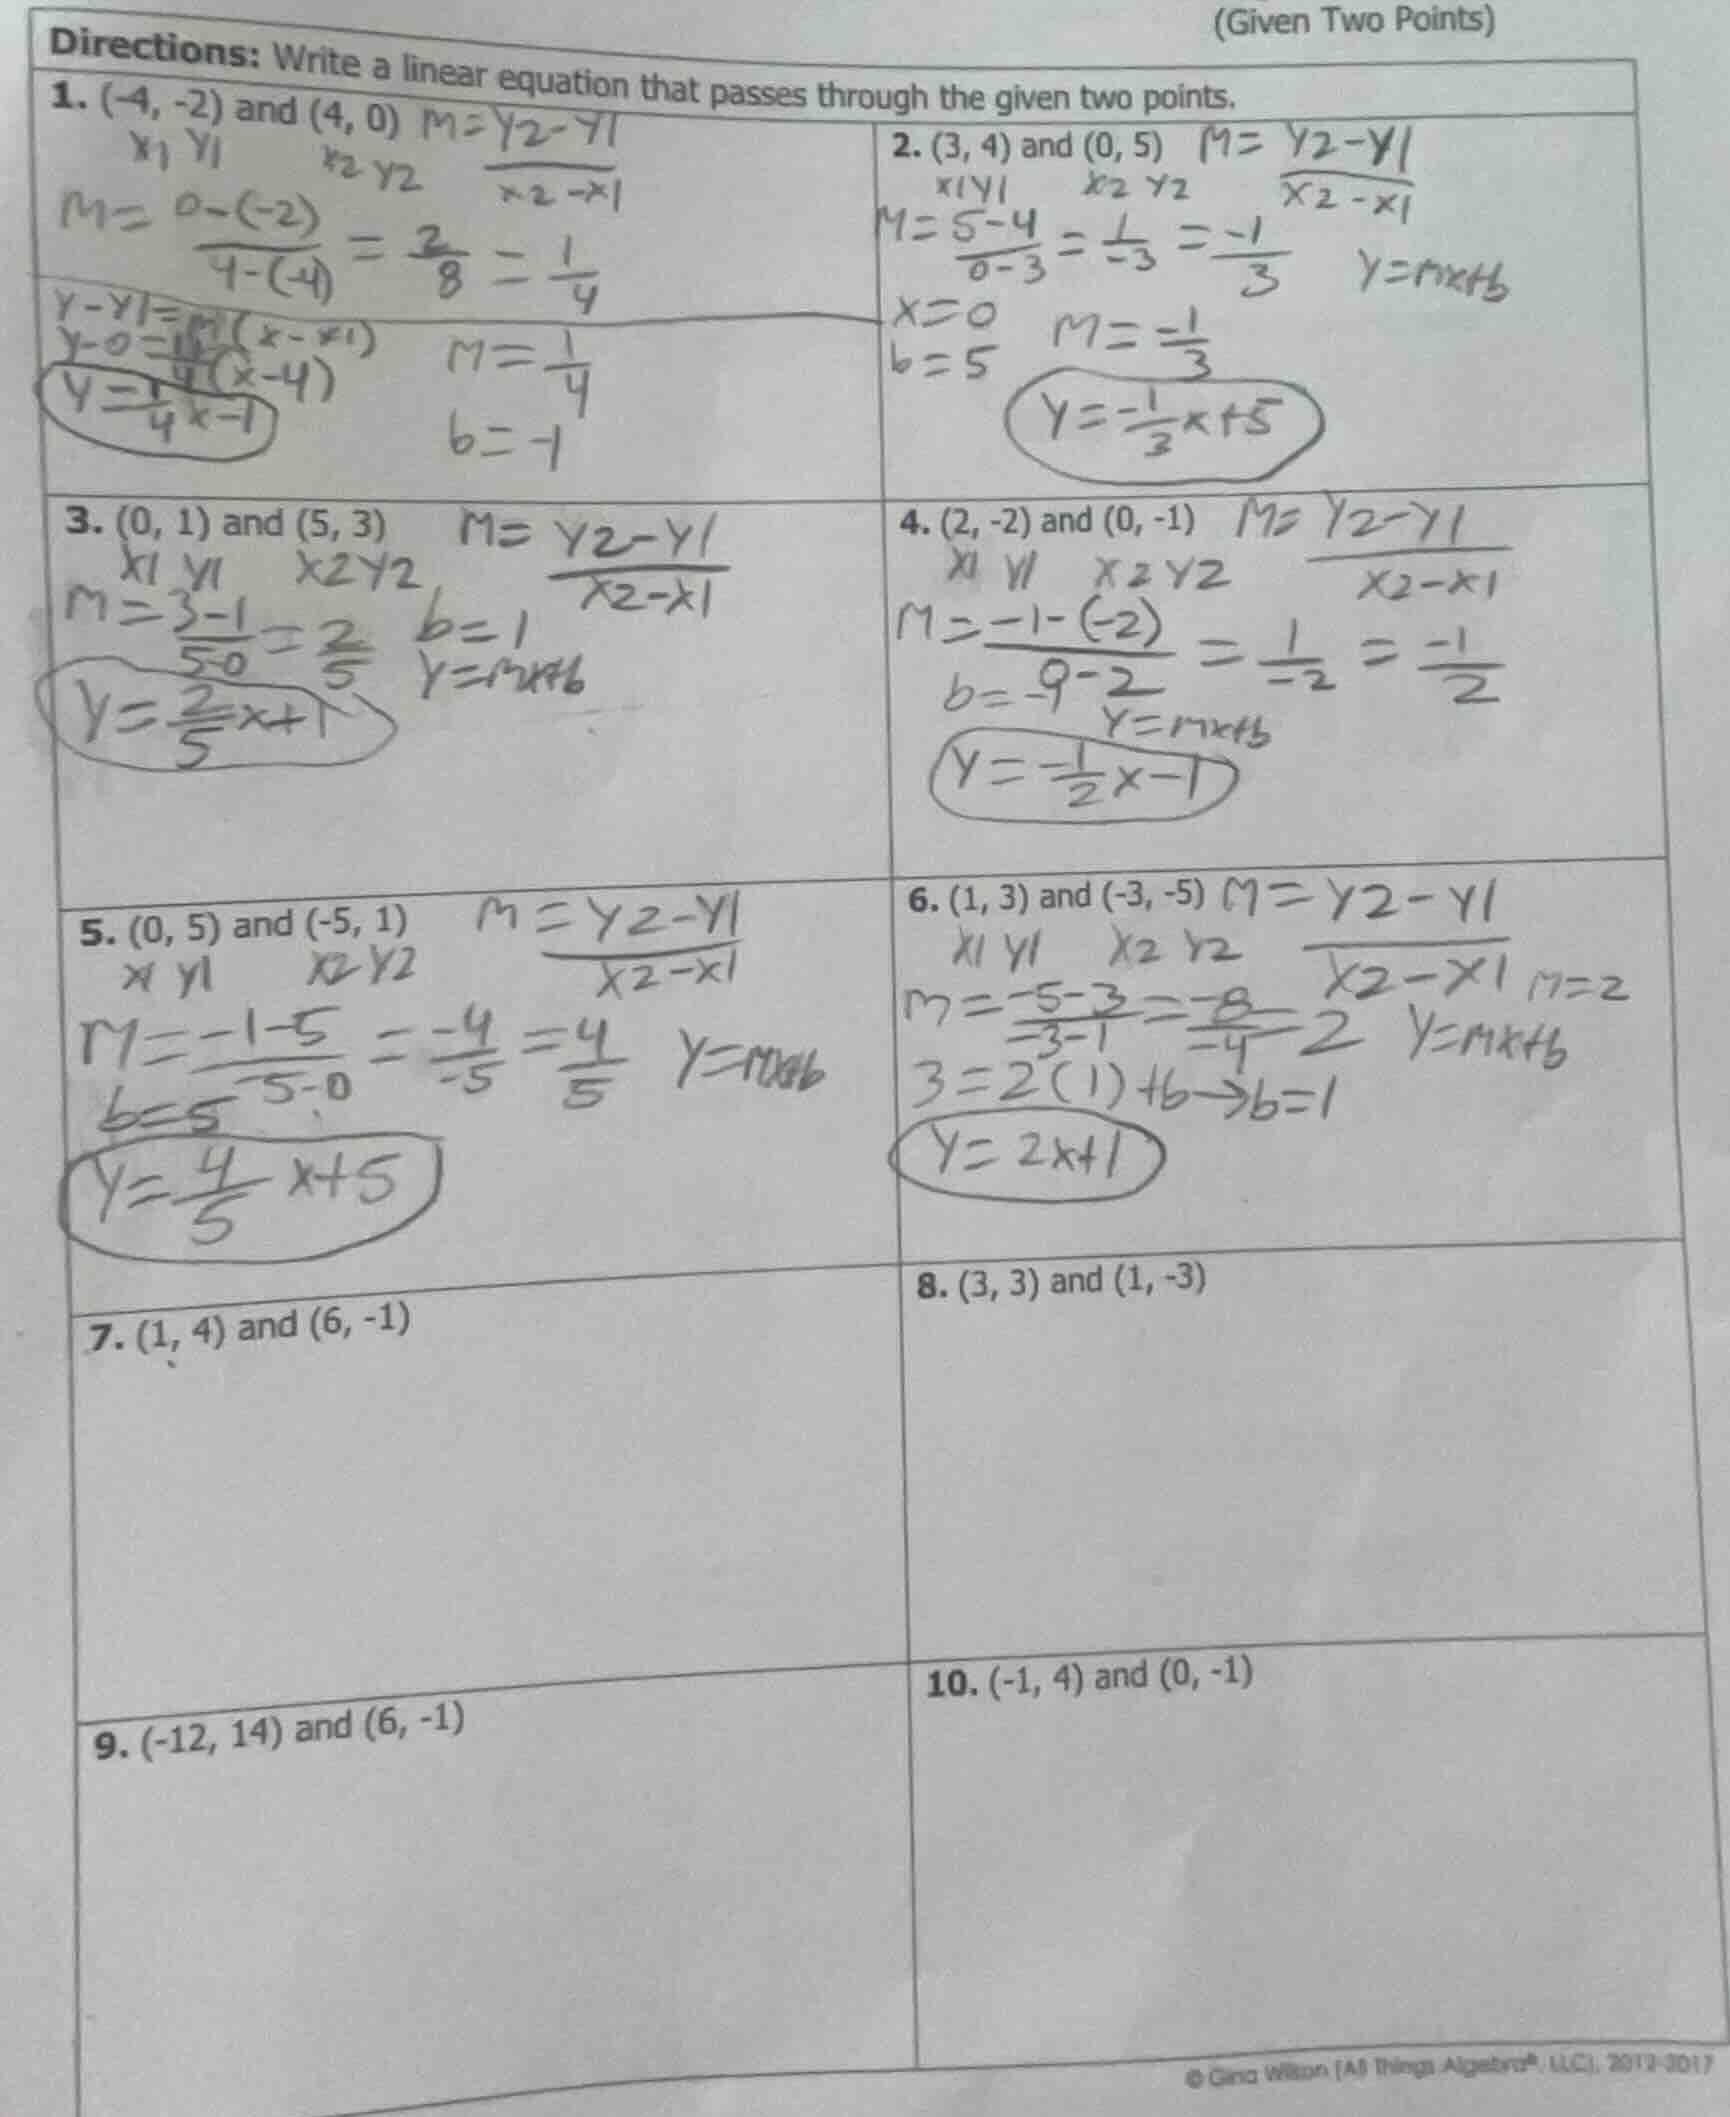 (Given Two Points)
Directions: Write a linear equation that passes through the given two points.
1. (-4, -2) and (4, 0) M= Y2-Y1
X1 Y1 X2 Y2 X2-X1
M= 0-(-2) = 2 = 1
4-(-4) 8 4
Y-Y1=M(X-X1)
Y-0=1/4(X-4) M=1/4
Y=1/4X-1
b=-1
2. (3, 4) and (0, 5) M= Y2-Y1
X1Y1 X2 Y2 X2-X1
M=5-4 = 1 = -1
0-3 -3 3 Y=MX+b
X=0 M=-1/3
b=5
Y=-1/3X+5
3. (0, 1) and (5, 3) M= Y2-Y1
X1 Y1 X2Y2 X2-X1
M=3-1=2 b=1
5-0 5 Y=MX+b
Y=2/5X+1
4. (2, -2) and (0, -1) M= Y2-Y1
X1 Y1 X2Y2 X2-X1
M=-1-(-2) = 1 = -1
0-2 -2 2
b=-1
Y=MX+b
Y=-1/2X-1
5. (0, 5) and (-5, 1) M=Y2-Y1
X1 Y1 X2Y2 X2-X1
M=-1-5 = -4 = 4 Y=MX+b
-5-0 -5 5
b=5
Y=4/5X+5
6. (1, 3) and (-3, -5) M=Y2-Y1
X1 Y1 X2 Y2 X2-X1 M=2
M=-5-3=-8=2 Y=MX+b
-3-1 -4
3=2(1)+b→b=1
Y=2X+1
7. (1, 4) and (6, -1)
8. (3, 3) and (1, -3)
9. (-12, 14) and (6, -1)
10. (-1, 4) and (0, -1)
© Gina Wilson (All Things Algebra®, LLC), 2012-2017